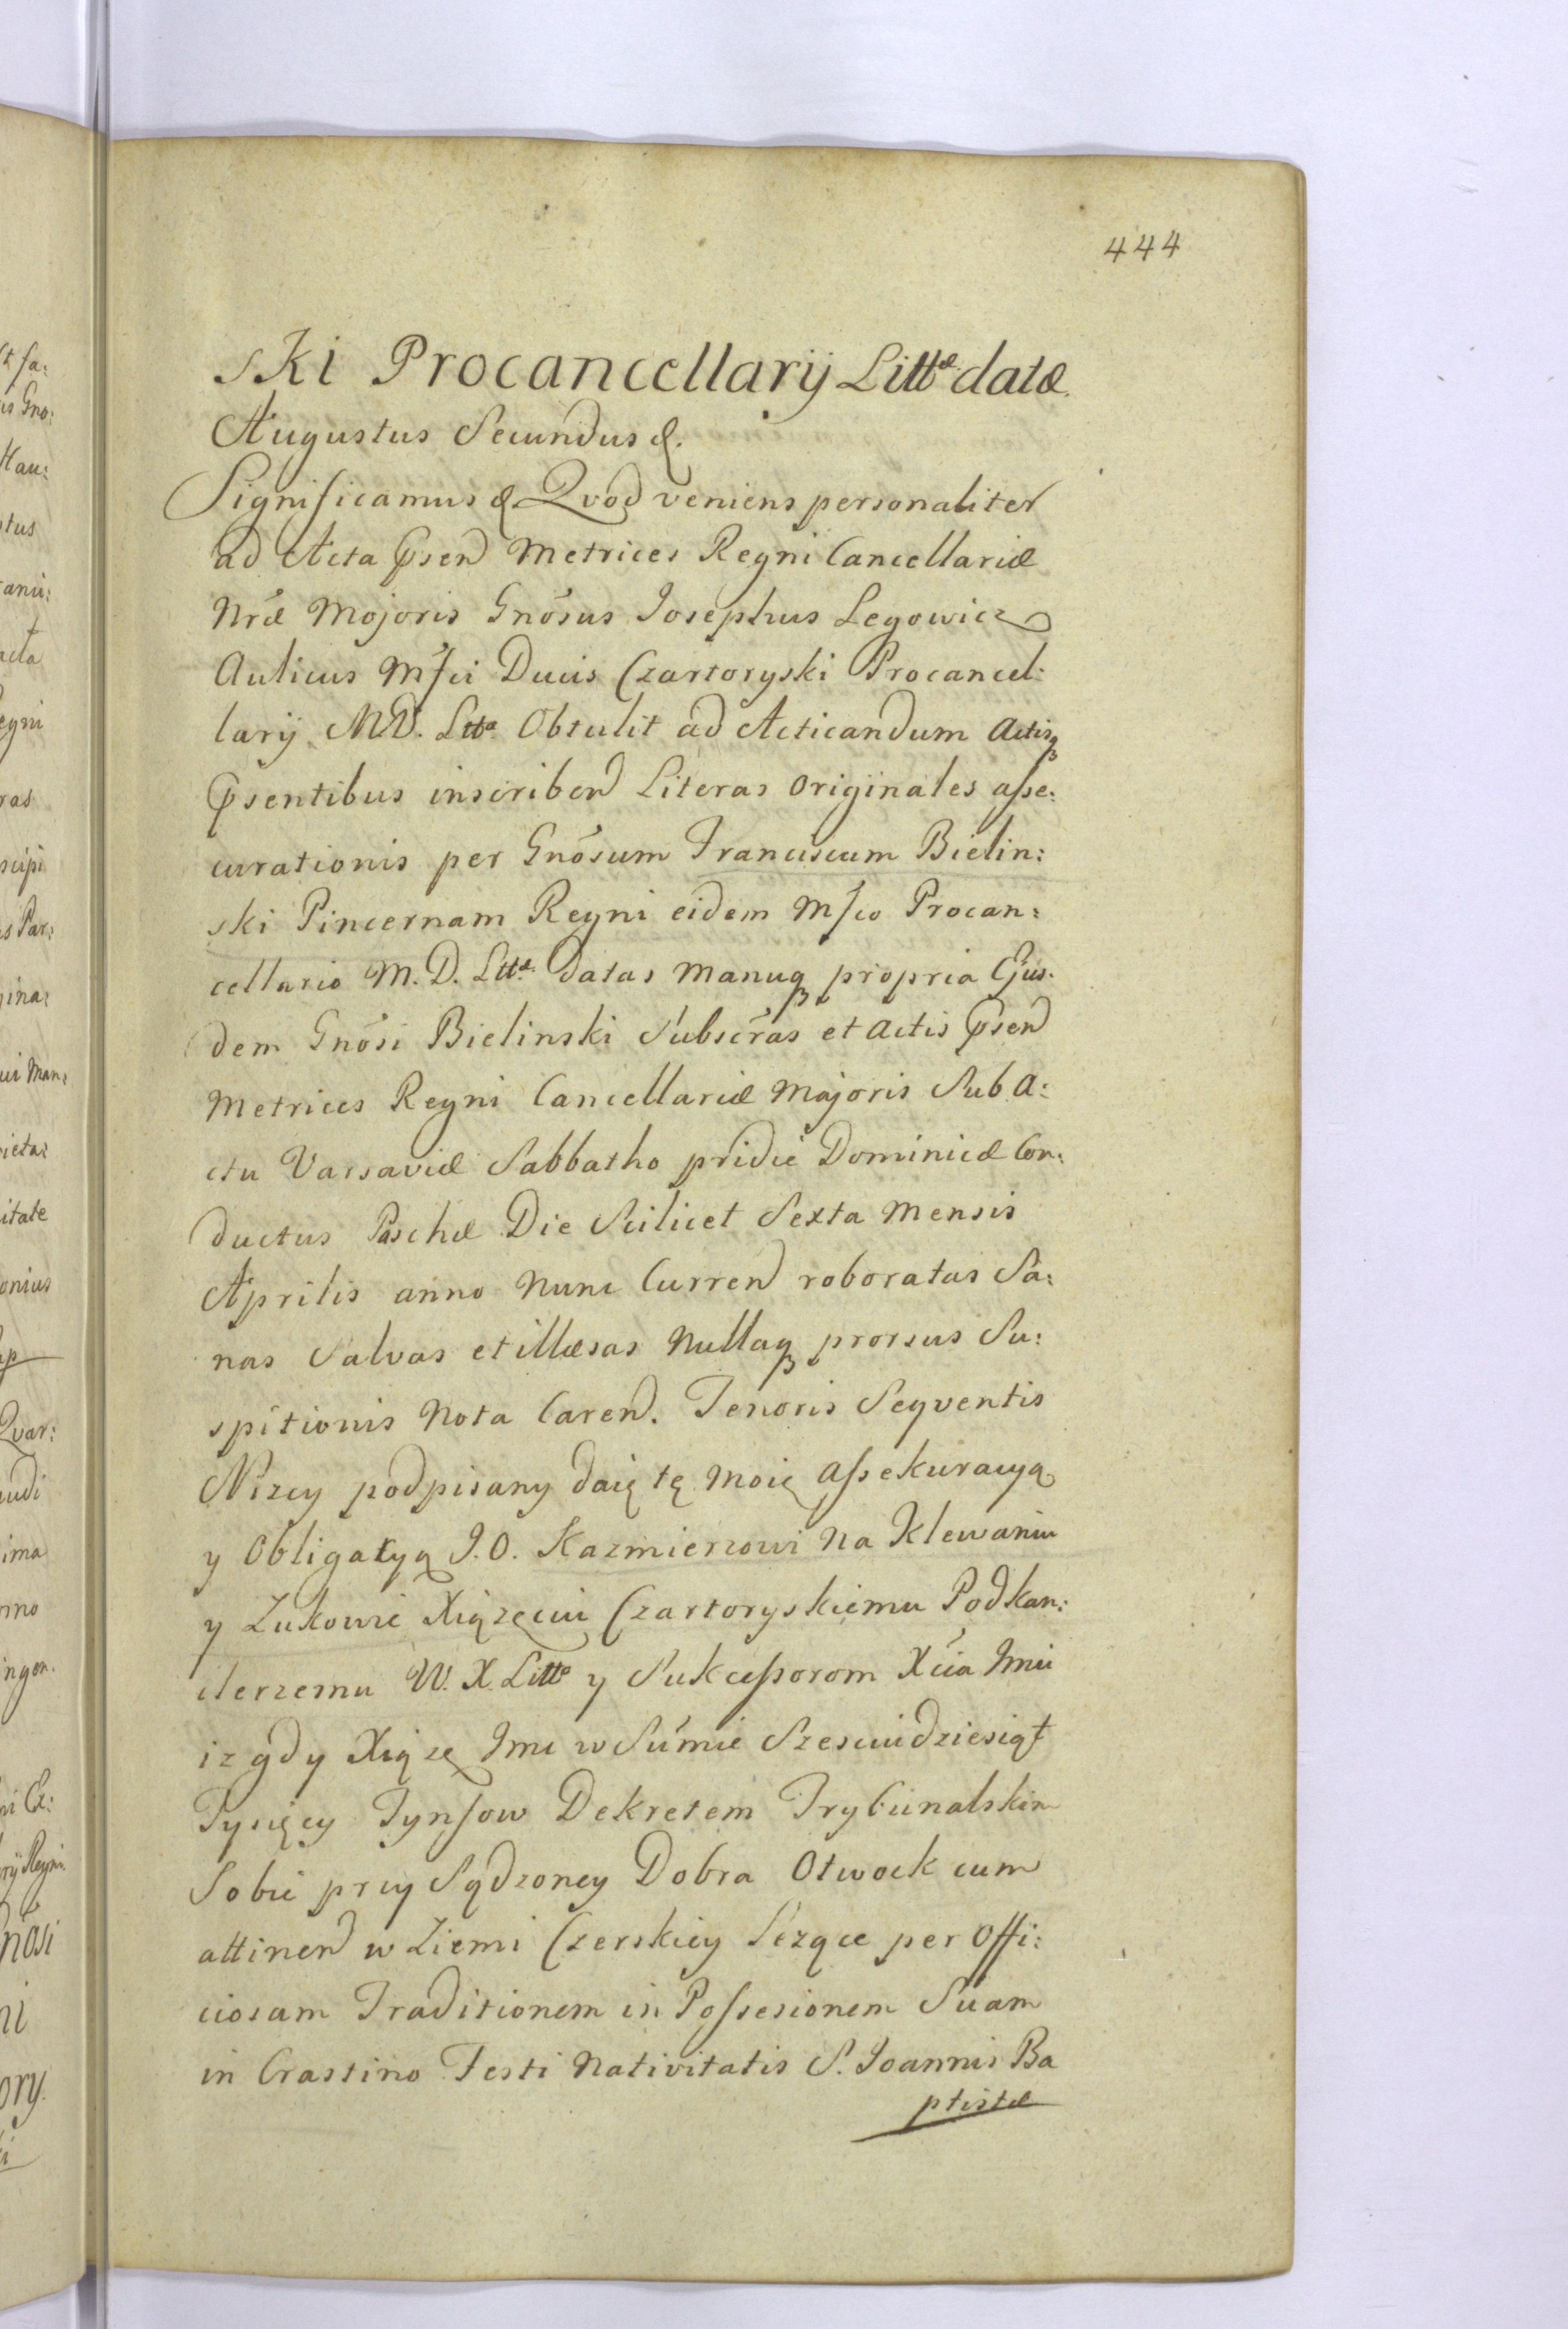 444
ski Procancellarij Littæ datæ.
Augustus Secundus &.
Significamus & Qvod veniens personaliter
ad Acta Psen Metrices Regni Cancellariæ
Nræ Majoris Gnosus Josephus Legowicz
Aulicus Mfci Ducis Czartoryski Procancel:
larij M.D. Litta Obtulit ad Acticandum Actisq
Psentibus inscriben Literas Originales asse:
curationis per Gnosum Franciscum Bielin:
ski Pincernam Regni eidem Mfco Procan:
cellario M. D. Littæ datas Manuq propria Ejus:
dem Gnosi Bielinski Subscras et Actis Psen
Metrices Regni Cancellariæ Majoris Sub A:
ctu Varsaviæ Sabbatho pridie Dominicæ Con:
ductus Paschæ Die Scilicet Sexta Mensis
Aprilis anno Nunc Curren roboratas Sa:
nas Salvas et illæsas Nullaq prorsus Su:
spitionis Nota Caren. Tenoris Seqventis
Nizey podpisany daię tę Moię Assekuracyą
y Obligacyą J.O. Kazmierzowi Na Klewaniu
y Zukowie Xiązęciu Czartoryskiemu Podkan:
clerzemu W. X. Litte y Sukcessorom Xcia Jmci
iz gdy Xiąze Jmc w Summie Szesciudziesiąt
Tysięcy Tynfow Dekretem Trybunalskim
Sobie przy Sądzoney Dobra Otwock cum
attinen w Ziemi Czerskiey Lezące per Offi:
ciosam Traditionem in Possesionem Suam
in Crastino Festi Nativitatis S. Joannis Ba
ptistæ